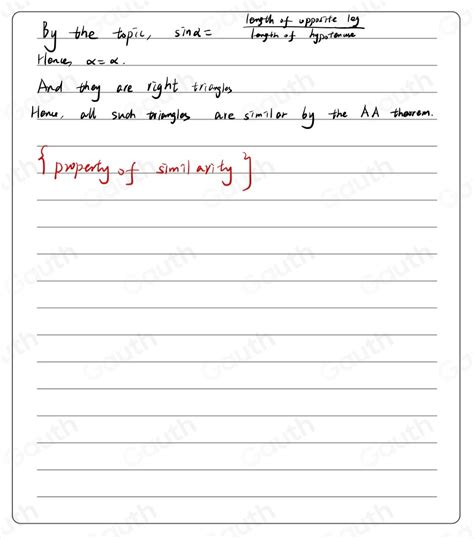 By the topic, sinα = length of opposite leg / length of hypotenuse
Hence, α = α.
And they are right triangles
Hence, all such triangles are similar by the AA theorem.
{property of similarity}
Gauth